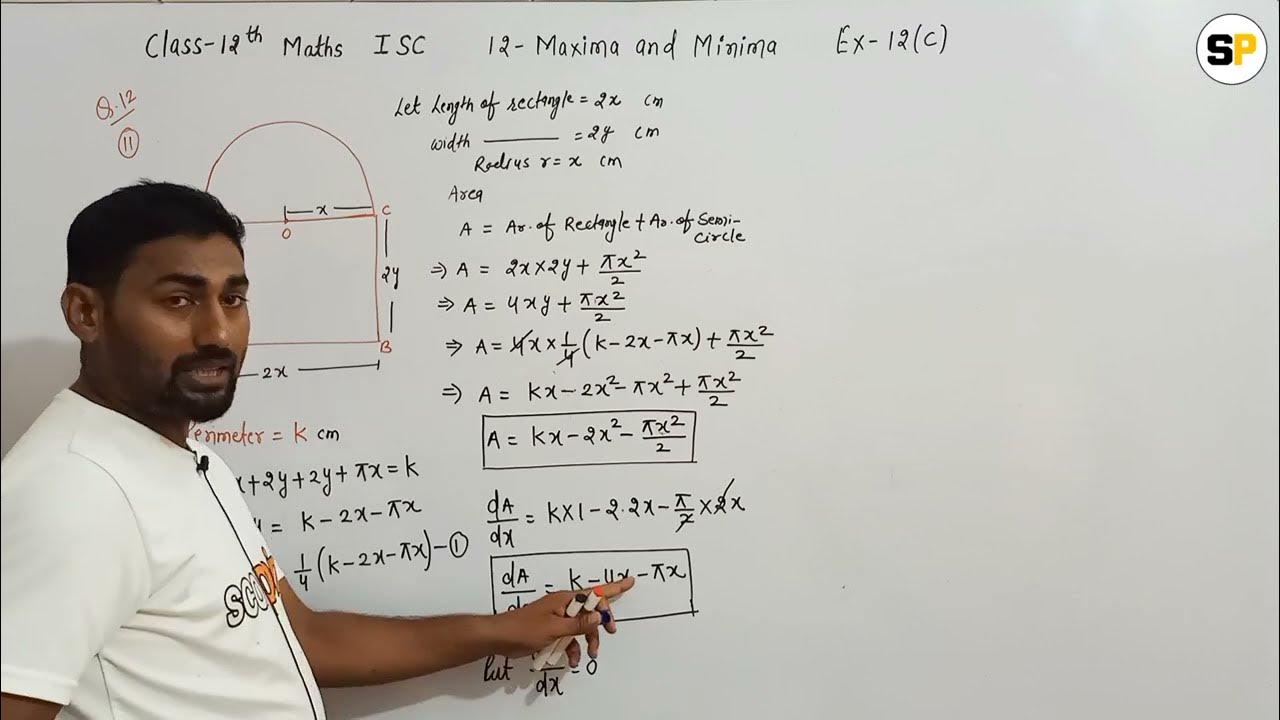 Class-12th Maths ISC 12- Maxima and Minima Ex-12(C)
SP
Q.12
11
x
C
O
2y
B
2x
Perimeter = K cm
x+2y+2y+πx=k
= k-2x-πx
1/4(k-2x-πx)-①
Let Length of rectangle = 2x cm
width ——— = 2y cm
Radius r = x cm
Area
A = Ar. of Rectangle + Ar. of Semi-
circle
⇒ A = 2x×2y + πx²/2
⇒ A = 4xy + πx²/2
⇒ A = 4x × 1/4(k-2x-πx) + πx²/2
⇒ A = kx-2x²-πx²+πx²/2
A = kx-2x²-πx²/2
dA/dx = k×1-2.2x-π/2×2x
dA/dx = k-4x-πx
Put dx = 0
SCOO